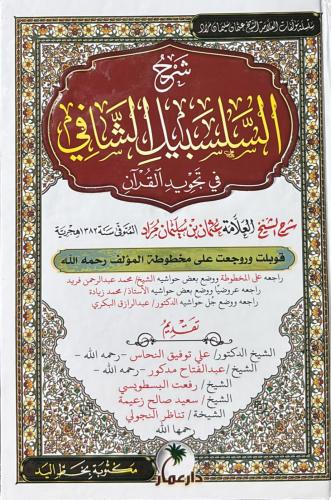 سلسلة مؤلفات العلامة الشيخ عثمان سليمان مراد
شرح
السلسبيل الشافي
في تجويد القرآن
شرح الشيخ العلامة عثمان بن سليمان مراد المتوفى سنة ١٣٨٢ هجرية
قوبلت وروجعت على مخطوطة المؤلف رحمه الله
راجعه على المخطوطة ووضع بعض حواشيه الشيخ/ محمد عبدالرحمن فريد
راجعه عروضياً ووضع بعض حواشيه الأستاذ/ محمد زيادة
راجعه ووضع جل حواشيه الدكتور/ عبدالرازق البكري
تقديم
الشيخ الدكتور/ علي توفيق النحاس -رحمه الله-
الشيخ / عبدالفتاح مدكور -رحمه الله-
الشيخ / رفعت البسطويسي
الشيخ / سعيد صالح زعيمة
الشيخة / تناظر النجولي
رحمها الله
مكتوبة بخط اليد
دار عمار